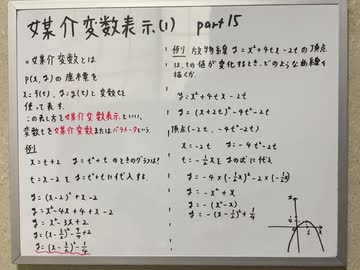 媒介変数表示(1) part15
○媒介変数とは
P(x,y)の座標を
x=f(t), y=g(t)と変数tを
使って表す。
この表し方を媒介変数表示といい、
変数tを媒介変数またはパラメータという。
例1
x=t+2 y=t²+t のときのグラフは?
t=x-2をy=t²+tに代入する。
y=(x-2)²+x-2
y=x²-4x+4+x-2
y=x²-3x+2
y=(x-3/2)²-9/4+2
y=(x-3/2)²-1/4
例2 放物線 y=x²+4tx-2t の頂点
は、tの値が変化するとき、どのような曲線を
描くか。
y=x²+4tx-2t
y=(x+2t)²-4t²-2t
頂点(-2t, -4t²-2t)
x=-2t y=-4t²-2t
t=-1/2x をyの式に代入
y=-4×(-1/2x)²-2×(-1/2x)
y=-x²+x
y=-(x²-x)
y=-(x-1/2)²+1/4